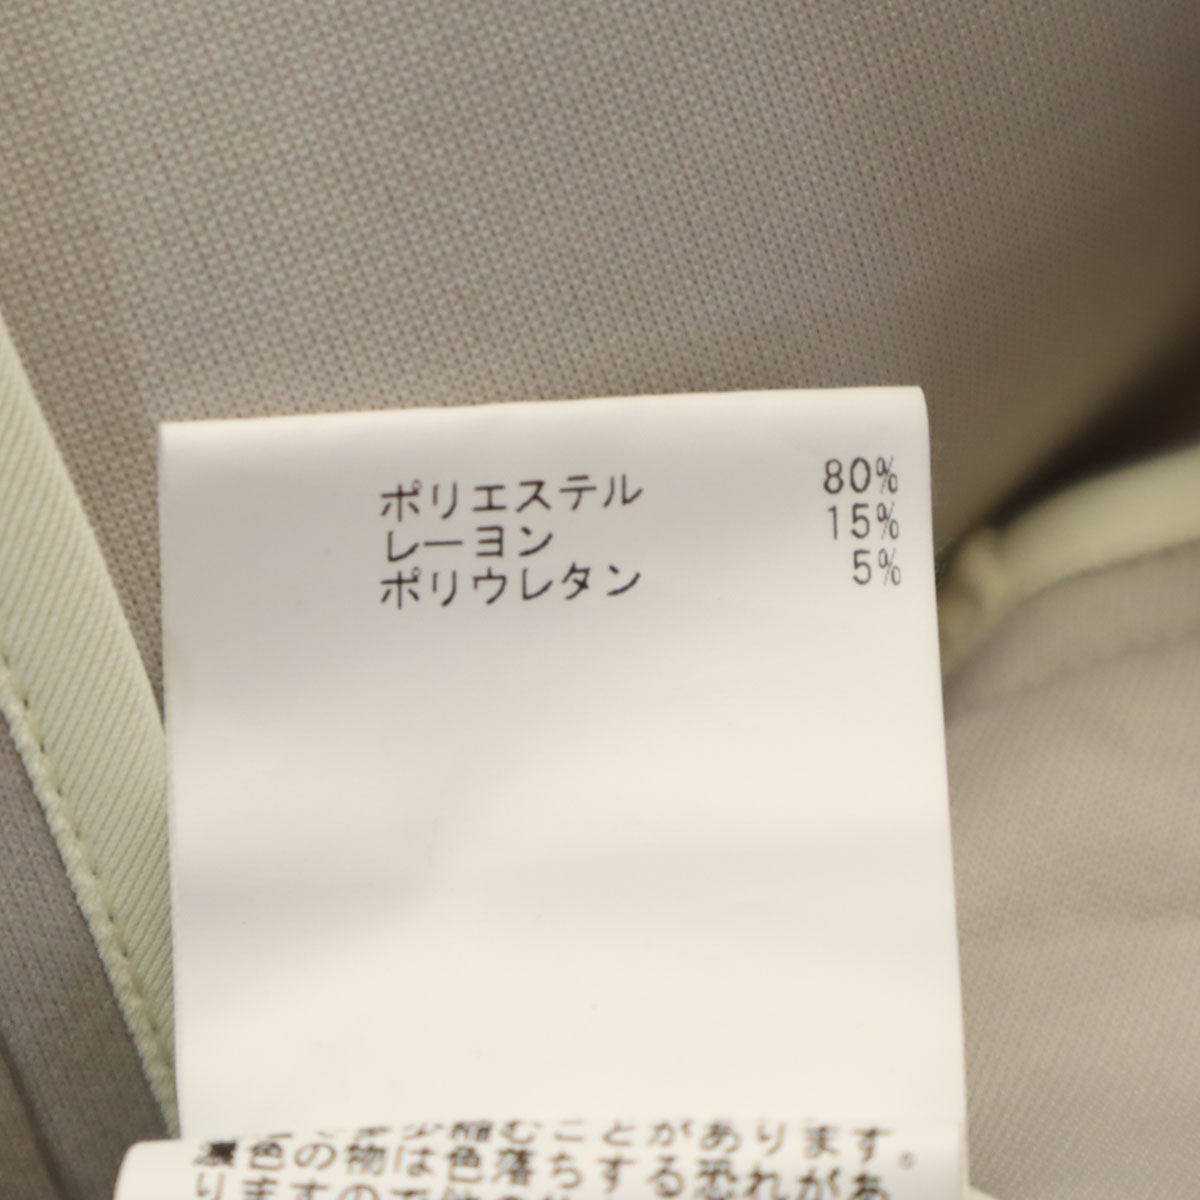 ポリエステル 80%
レーヨン 15%
ポリウレタン 5%
縮むことがあります。
濃色の物は色落ちする恐れがあ
りますので